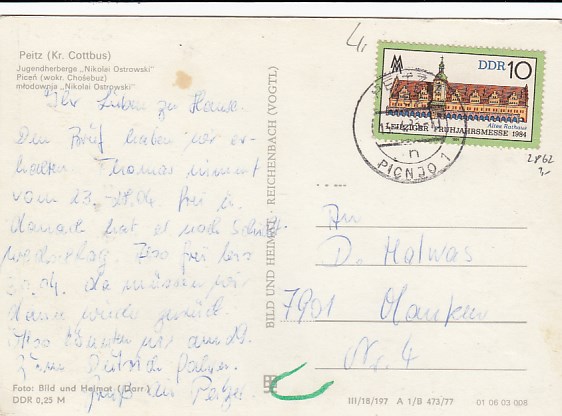 Peitz (Kr. Cottbus)
Jugendherberge „Nikolai Ostrowski"
Piceń (wokr. Chośebuz)
młodownia „Nikolai Ostrowski"
Ihr Lieben zu Hause.
Den Brief haben wir er-
halten. Thomas nimmt
vom 13. - 28.04 frei u.
danach hat er noch Schicht
frei bis
.04. da müssen wir
dann wieder zurück.
Also könnten wir am 29.
Gruß
Foto: Bild und Heimat (Darr)
DDR 0,25 M
BILD UND HEIMAT · REICHENBACH (VOGTL)
DDR 10
1984
Altes Rathaus
LEIPZIGER FRÜHJAHRSMESSE 1984
n
PICNJO 1
2862
An
D. Halwas
7901
Nr. 4
III/18/197 A 1/B 473/77
01 06 03 008